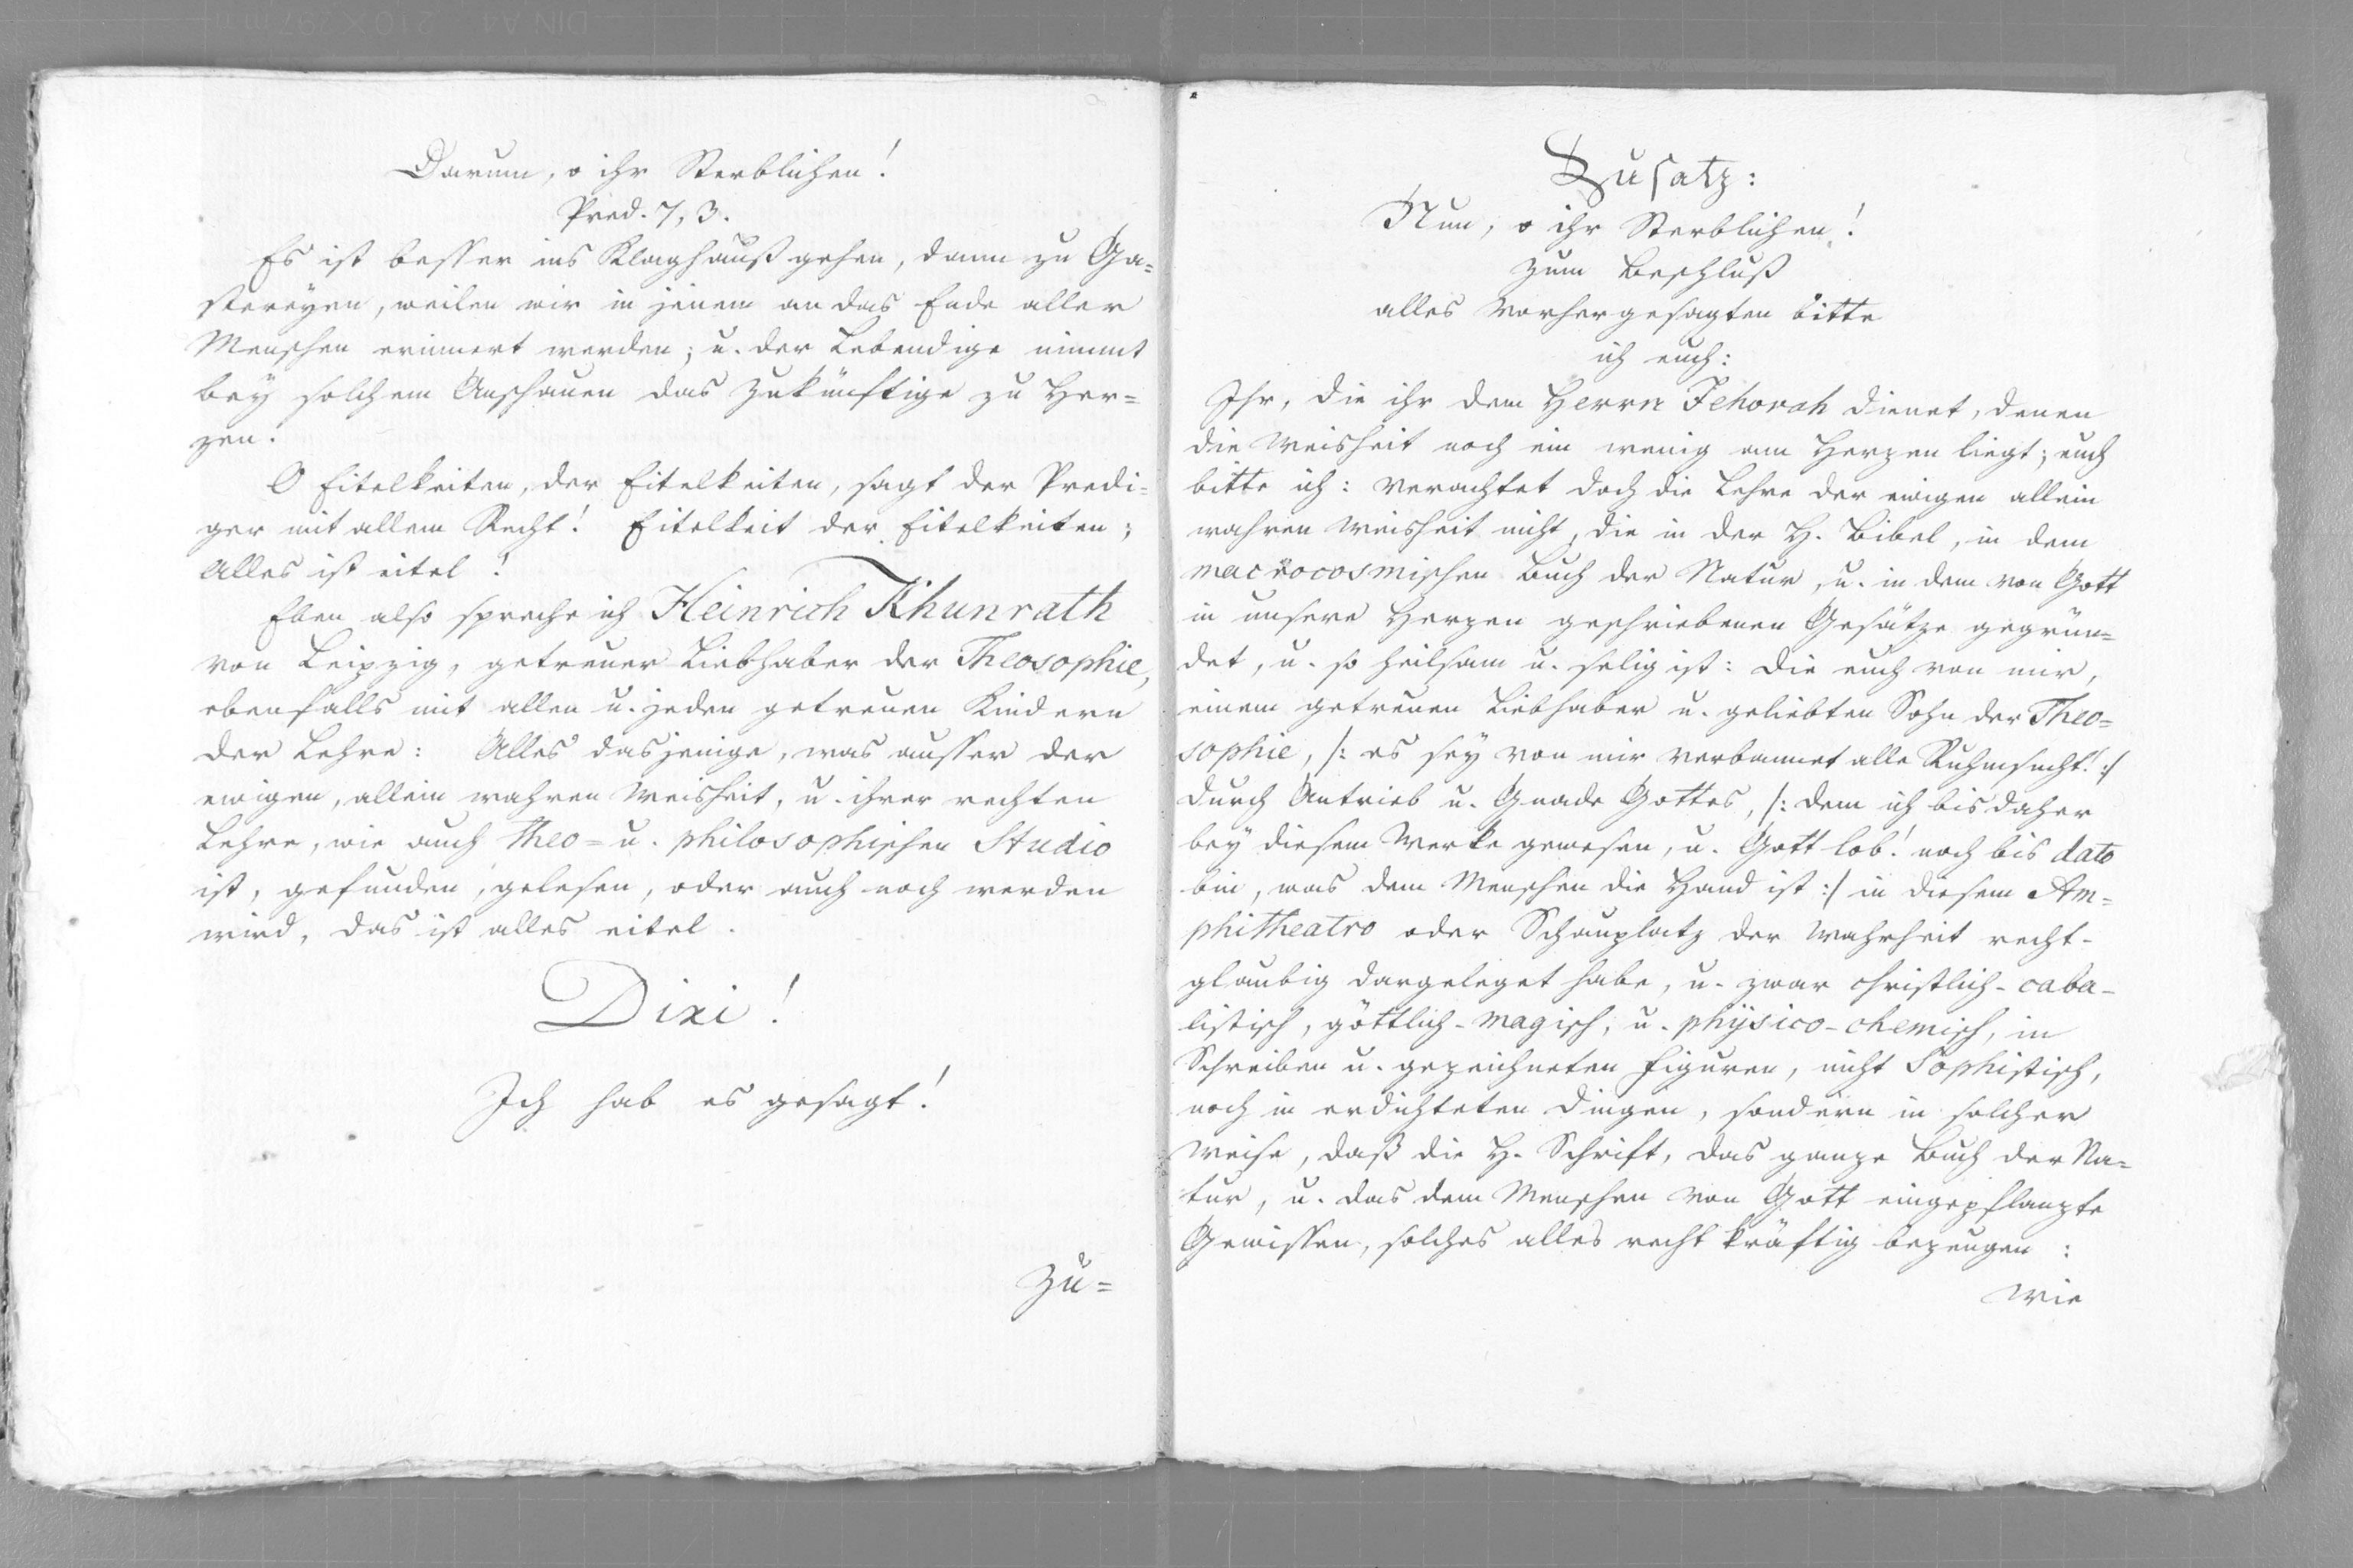 Darum, o ihr Sterblichen!
Pred. 7, 3.
Es ist besser ins Klaghauß gehen, dann zu Ga=
stereyen, weilen wir in jenem an das Ende aller
Menschen erinnert werden; u. der Lebendige nimmt
bey solchem Anschauen das Zukünftige zu Her=
zen.
O Eitelkeiten, der Eitelkeiten, sagt der Predi=
ger mit allem Recht! Eitelkeit der Eitelkeiten;
Alles ist eitel!
Eben also spreche ich Heinrich Khunrath
von Leipzig, getreuer Liebhaber der Theosophie,
ebenfalls mit allen u. jeden getreuen Kindern
der Lehre: Alles dasjenige, was ausser der
ewigen, allein wahren Weisheit, u. ihrer rechten
Lehre, wie auch theo= u. philosophischen Studio
ist, gefunden, gelesen, oder auch noch werden
wird, das ist alles eitel.
Dixi!
Ich hab es gesagt!
Zu=
Zusatz:
Nun, o ihr Sterblichen!
zum Beschluß
alles vorhergesagten bitte
ich euch:
Ihr, die ihr dem Herrn Jehovah dienet, denen
die Weisheit noch ein wenig am Herzen liegt; euch
bitte ich: verachtet doch die Lehre der ewigen allein
wahren Weisheit nicht, die in der H. Bibel, in dem
macrocosmischen Buch der Natur, u. in dem von Gott
in unsere Herzen geschriebenen Gesätze gegrün=
det, u. so heilsam u. selig ist: die euch von mir,
einem getreuen Liebhaber u. geliebten Sohn der Theo=
sophie, /: es sey von mir verbannet alle Ruhmsucht! :/
durch Antrieb u. Gnade Gottes, /: dem ich bis daher
bey diesem Werke gewesen, u. Gott lob! noch bis dato
bin, was dem Menschen die Hand ist :/ in diesem Am=
phitheatro oder Schauplatz der Wahrheit recht-
glaubig dargeleget habe, u. zwar christlich-caba-
listisch, göttlich-magisch, u. physico-chemisch, in
Schreiben u. gezeichneten Figuren, nicht Sophistisch,
noch in erdichteten Dingen, sondern in solcher
Weise, daß die H. Schrift, das ganze Buch der Na=
tur, u. das dem Menschen von Gott eingepflanzte
Gewissen, solches alles recht kräftig bezeugen:
wie